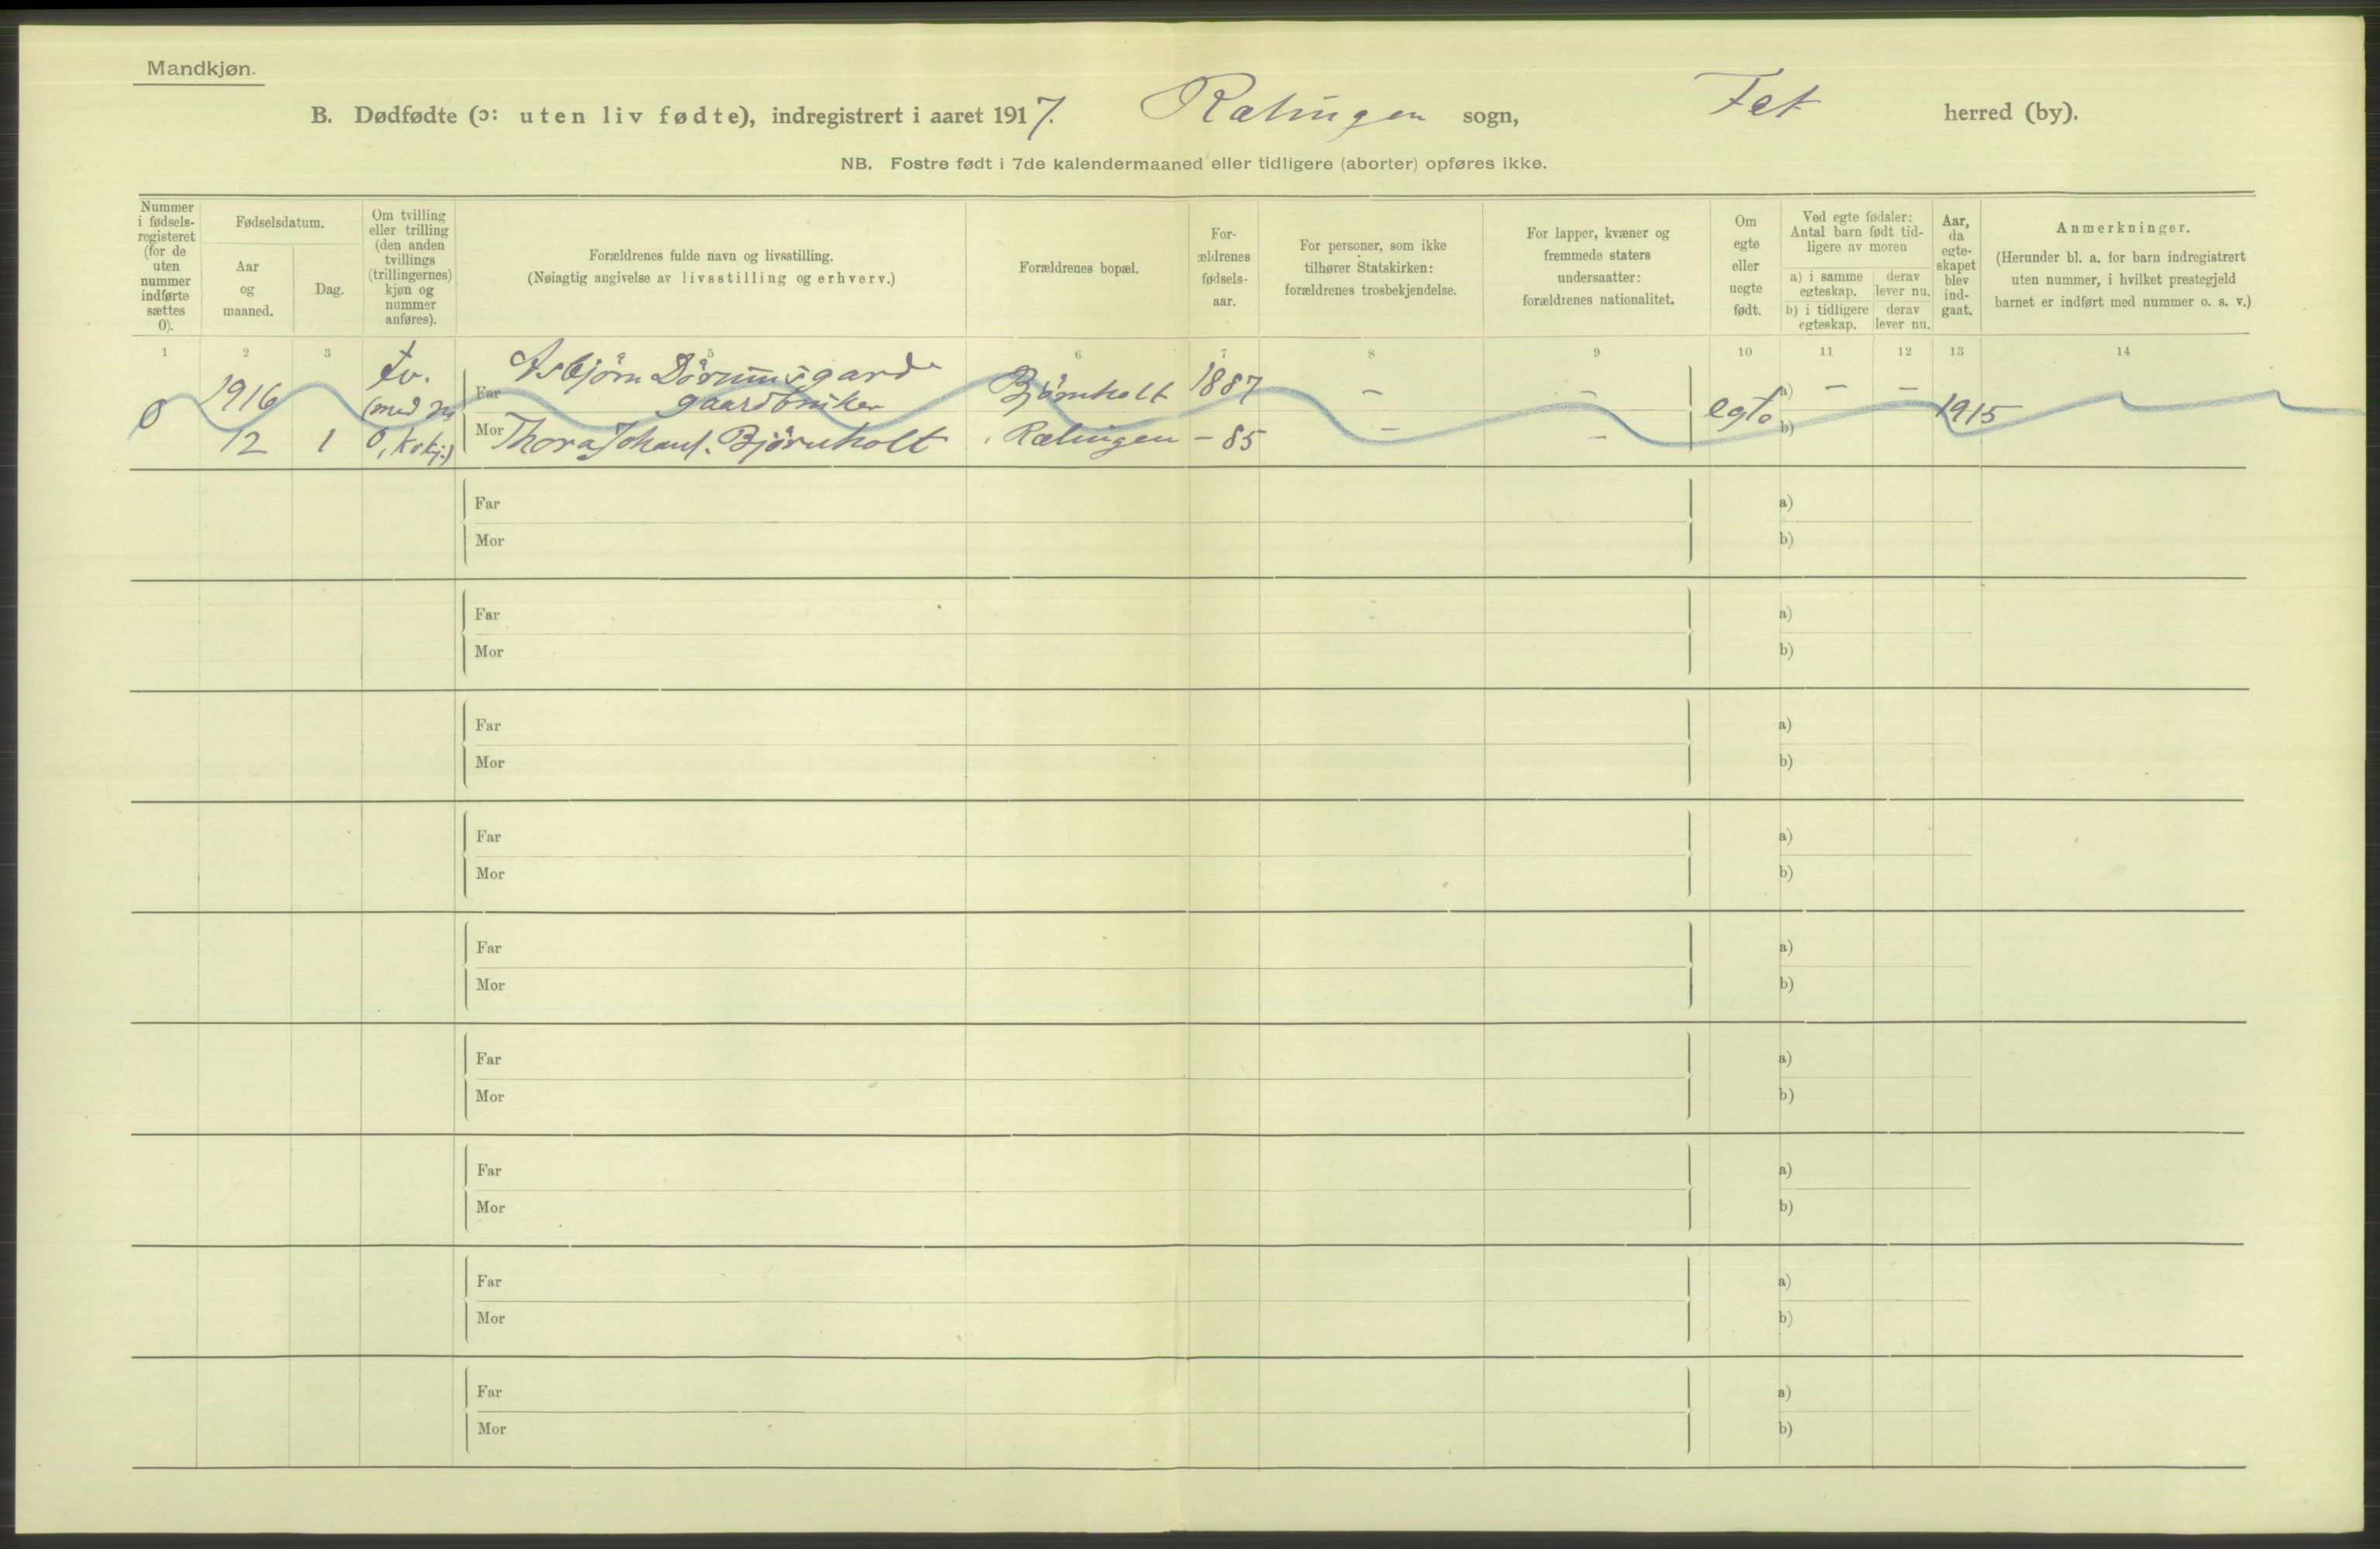 Mandkjøn.
B. Dødfødte (ɔ: uten liv fødte), indregistrert i aaret 1917. Rælingen sogn, Fet herred (by).
NB. Fostre født i 7de kalendermaaned eller tidligere (aborter) opføres ikke.
Nummer
i fødsels-
registeret
(for de
uten
nummer
indførte
sættes
0).
Fødselsdatum.
Aar
og
maaned.
Dag.
Om tvilling
eller trilling
(den anden
tvillings
(trillingernes)
kjøn og
nummer
anføres).
Forældrenes fulde navn og livsstilling.
(Nøiagtig angivelse av livsstilling og erhverv.)
Forældrenes bopæl.
For-
ældrenes
fødsels-
aar.
For personer, som ikke
tilhører Statskirken:
forældrenes trosbekjendelse.
For lapper, kvæner og
fremmede staters
undersaatter:
forældrenes nationalitet.
Om
egte
eller
uegte
født.
Ved egte fødsler:
Antal barn født tid-
ligere av moren
a) i samme
egteskap.
derav
lever nu.
b) i tidligere
egteskap.
derav
lever nu.
Aar,
da
egte-
skapet
blev
ind-
gaat.
Anmerkninger.
(Herunder bl. a. for barn indregistrert
uten nummer, i hvilket prestegjeld
barnet er indført med nummer o. s. v.)
1 2 3 5 6 7 8 9 10 11 12 13 14
0
1916
12
1
tv.
(med №
0, k.kj.)
Far Asbjørn Dørumsgaard
gaardbruker
Mor Thora Johans. Bjørnholt
Bjørnholt
Rælingen
1887
– 85
–
–
–
–
egte
a) – –
b)
1915
Far a)
Mor b)
Far a)
Mor b)
Far a)
Mor b)
Far a)
Mor b)
Far a)
Mor b)
Far a)
Mor b)
Far a)
Mor b)
Far a)
Mor b)
Far a)
Mor b)